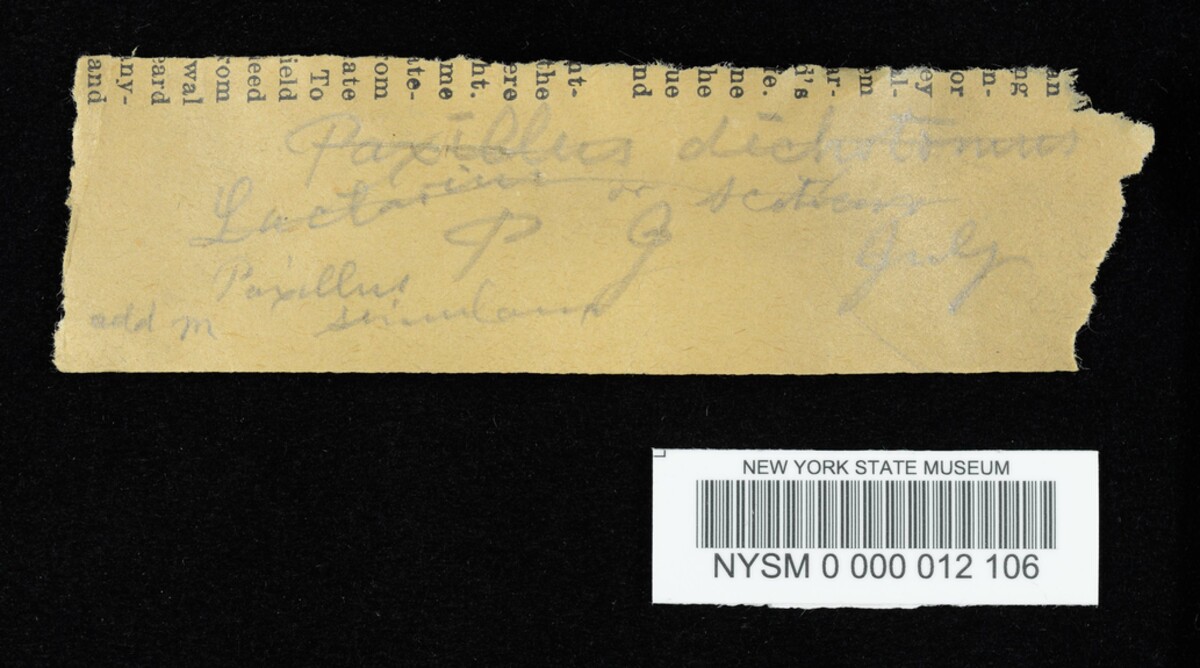 an
ng
or
in-
ey
al-
em
ar-
d's
e.
ne
he
ue
nd
nt-
the
ere
ht.
me
ate-
om
ate
To
ield
deed
rom
wal
eard
ny-
and
Paxillus dichotomus
Lactarius or
P G July
Paxillus
simulans
add m
NEW YORK STATE MUSEUM
NYSM 0 000 012 106